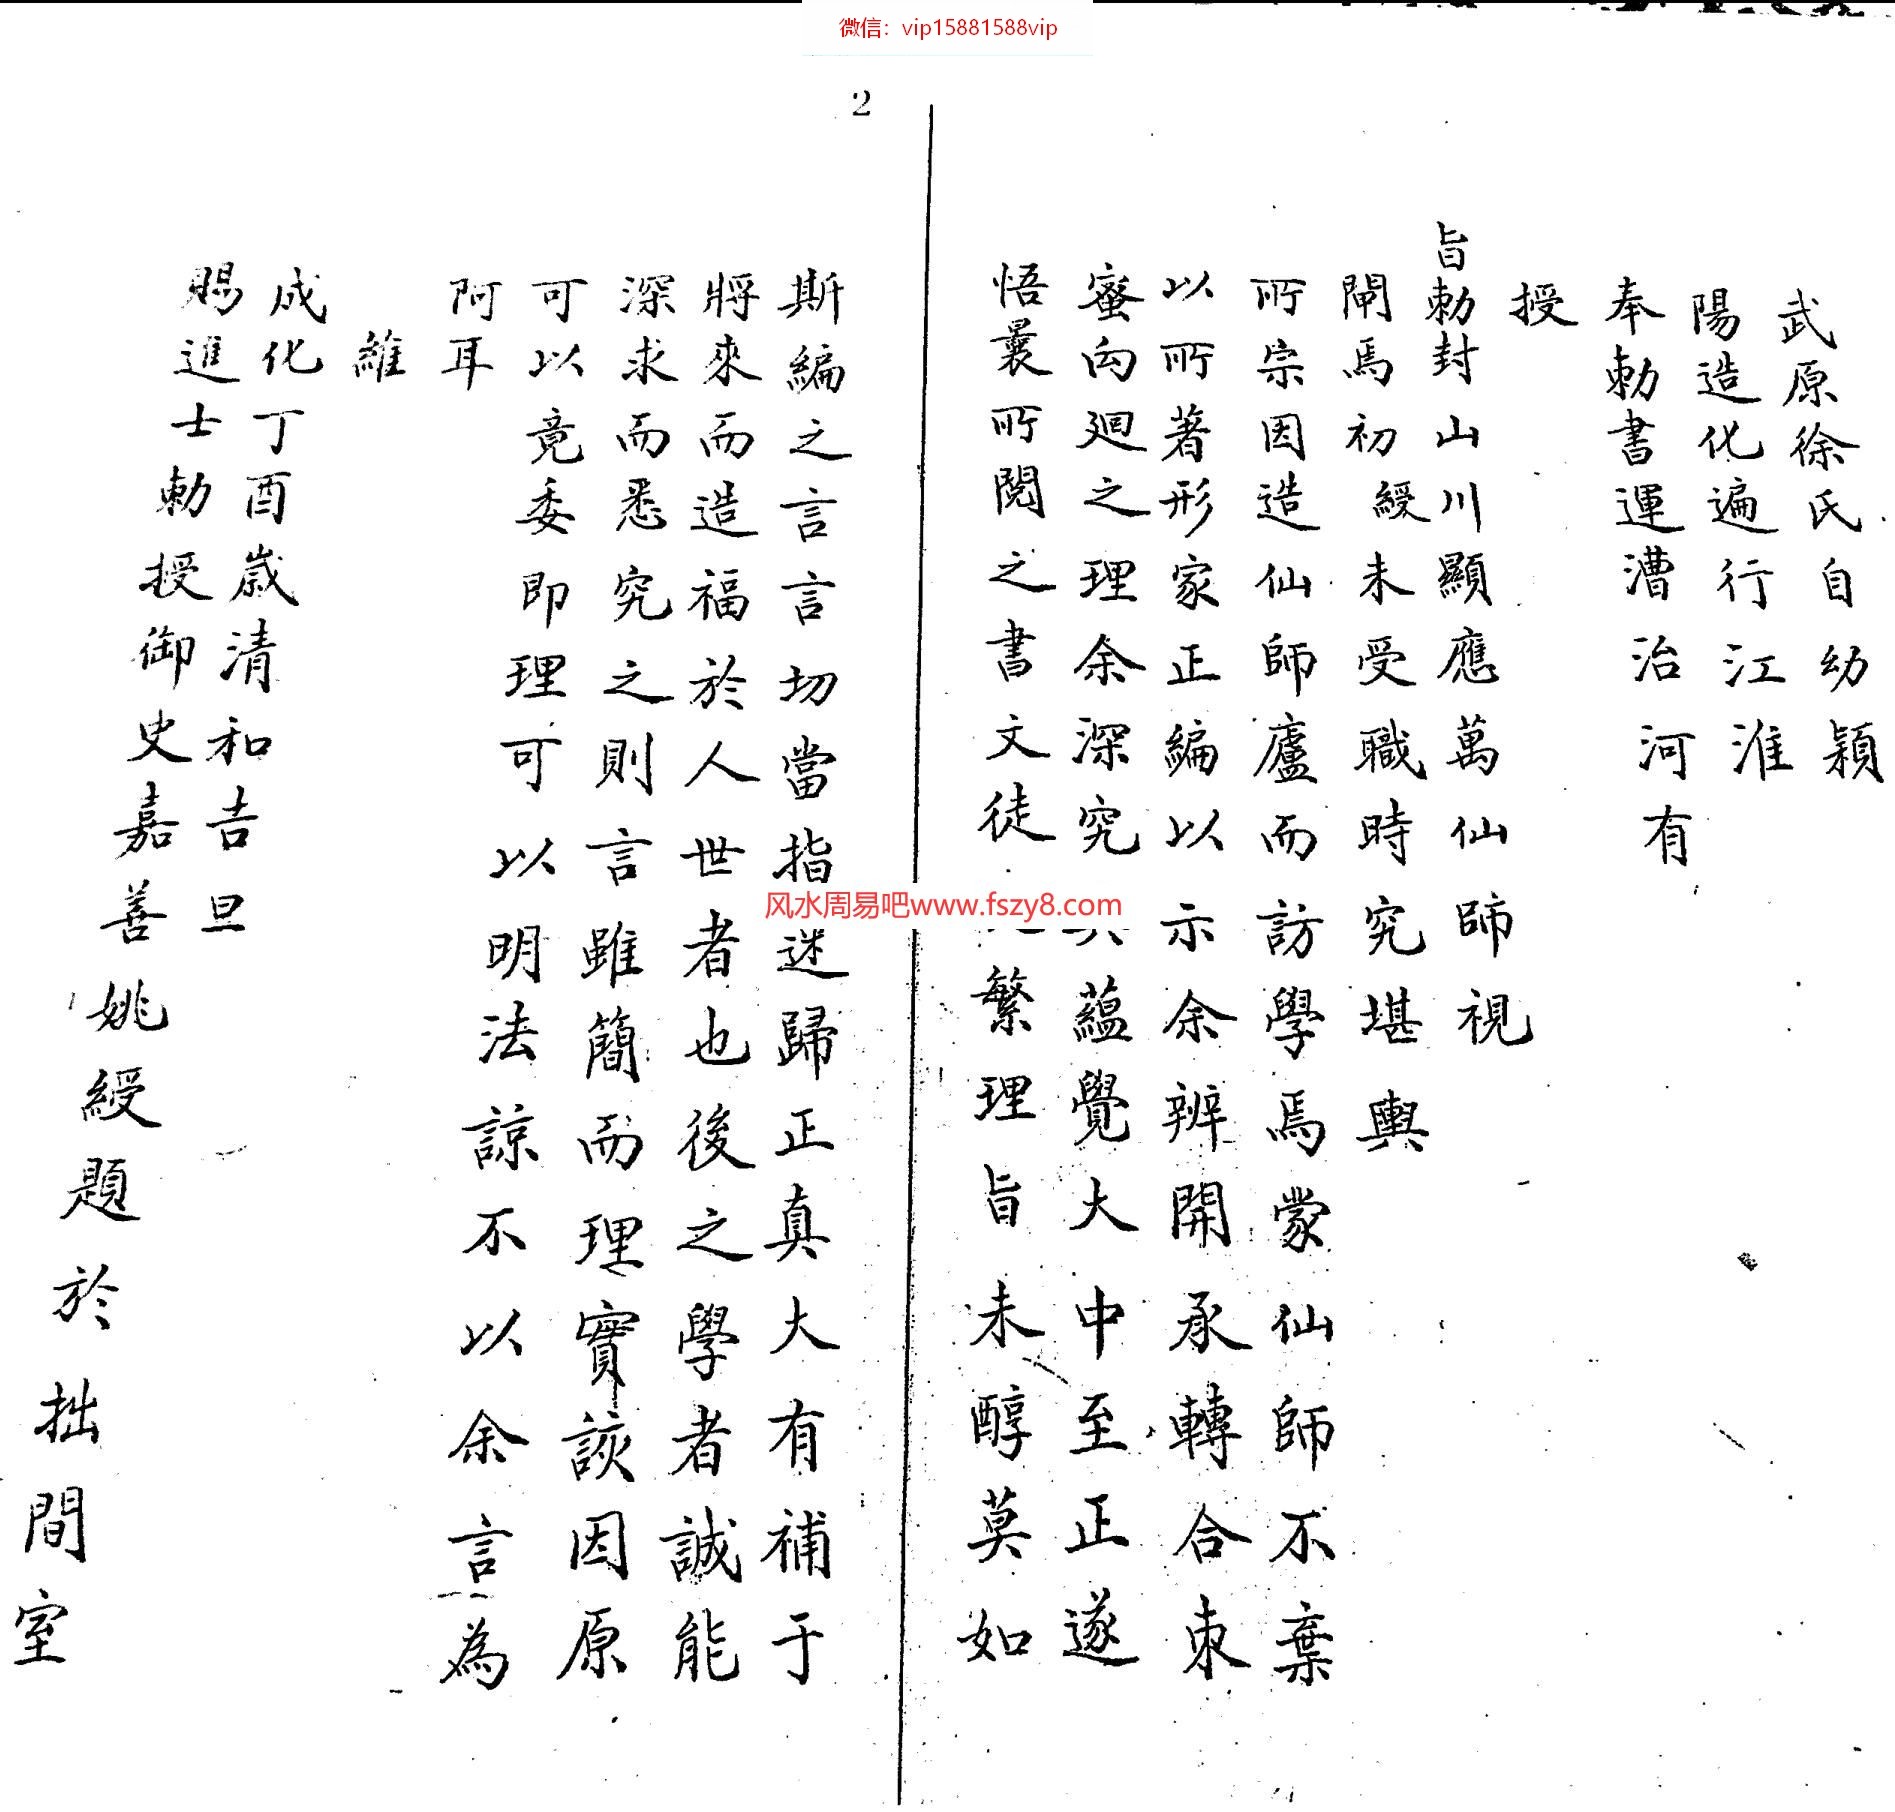 微信：vip15881588vip
2
武原徐氏自幼穎
陽造化遍行江淮
奉勅書運漕治河有
授
旨勅封山川顯應萬仙師視
閘焉初綬未受職時究堪輿
所宗因造仙師廬而訪學焉蒙仙師不棄
以所著形家正編以示余辨開承轉合束
蜜向廻之理余深究其蘊覺大中至正遂
悟曩所閱之書文徒繁理旨未醇莫如
斯編之言言切當指迷歸正真大有補于
將來而造福於人世者也後之學者誠能
深求而悉究之則言雖簡而理實該因原
可以竟委即理可以明法諒不以余言為
阿耳
維
成化丁酉歲清和吉旦
賜進士勅授御史嘉善姚綬題於拙間室
风水周易吧www.fszy8.com